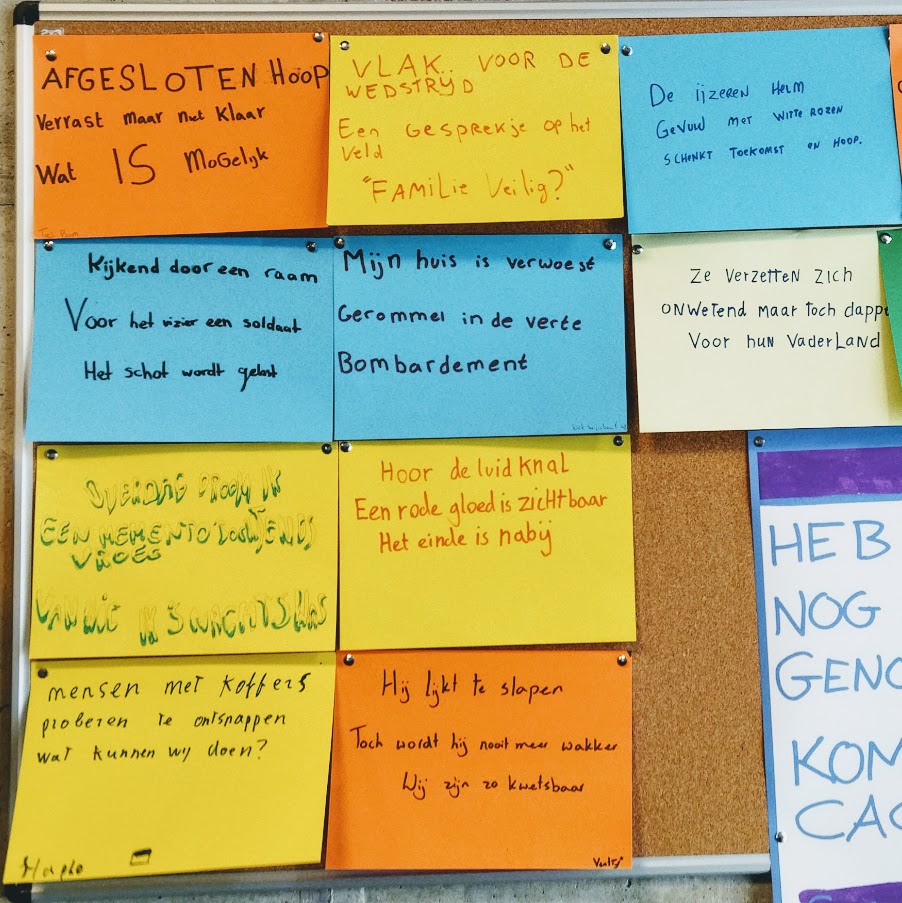 AFGESLOTEN HOOP
Verrast maar niet klaar
Wat IS Mogelijk
VLAK VOOR DE
WEDSTRIJD
Een GESPREKJE OP het
Veld
"FAMILIE Veilig?"
De IJZEREN HELM
GEVULD MET WITTE ROZEN
SCHENKT TOEKOMST EN HOOP.
Kijkend door een raam
Voor het vizier een soldaat
Het schot wordt gelost
Mijn huis is verwoest
Gerommel in de verte
Bombardement
Ze Verzetten Zich
onwetend maar toch dapper
Voor hun VaderLand
OVERDAG DRAAG IK
EEN MEMENTO
VROEG
VAN WIE IK 'S NACHTS WAS
Hoor de luid knal
Een rode gloed is zichtbaar
Het einde is nabij
mensen met koffers
proberen te ontsnappen
wat kunnen wij doen?
Hij lijkt te slapen
Toch wordt hij nooit meer wakker
Wij zijn zo kwetsbaar
HEB
NOG
GENO
KOM
CAC